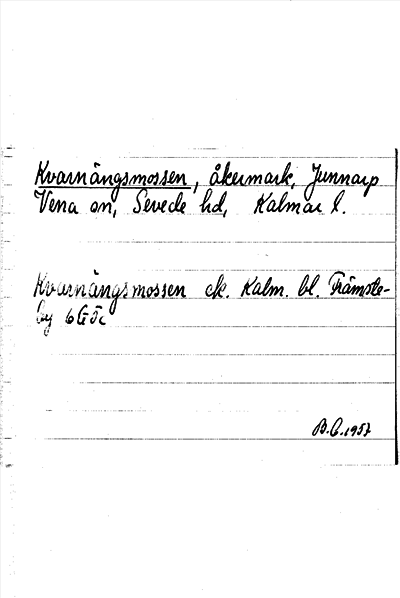 Kvarnängsmossen, åkermark, Junnarp
Vena sn, Sevede hd, Kalmar l.
Kvarnängsmossen ek. Kalm. bl. Främste-
by 6G
B.C. 1957